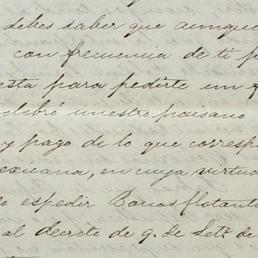 debes saber que aunque
con frecuencia de ti
esta para pedirte un
celebró nuestro paisano
y pago de lo que corresp
exicana, en cuya virtud
espedir Bonos flotant
al decreto de 9. de Set.e de